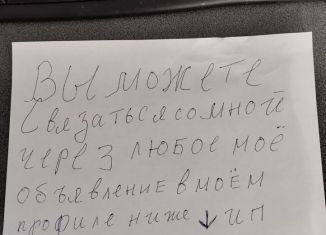 ВЫ МОЖЕТЕ
Связаться со мной
через любое моё
объявление в моём
профиле ниже ↓ и п